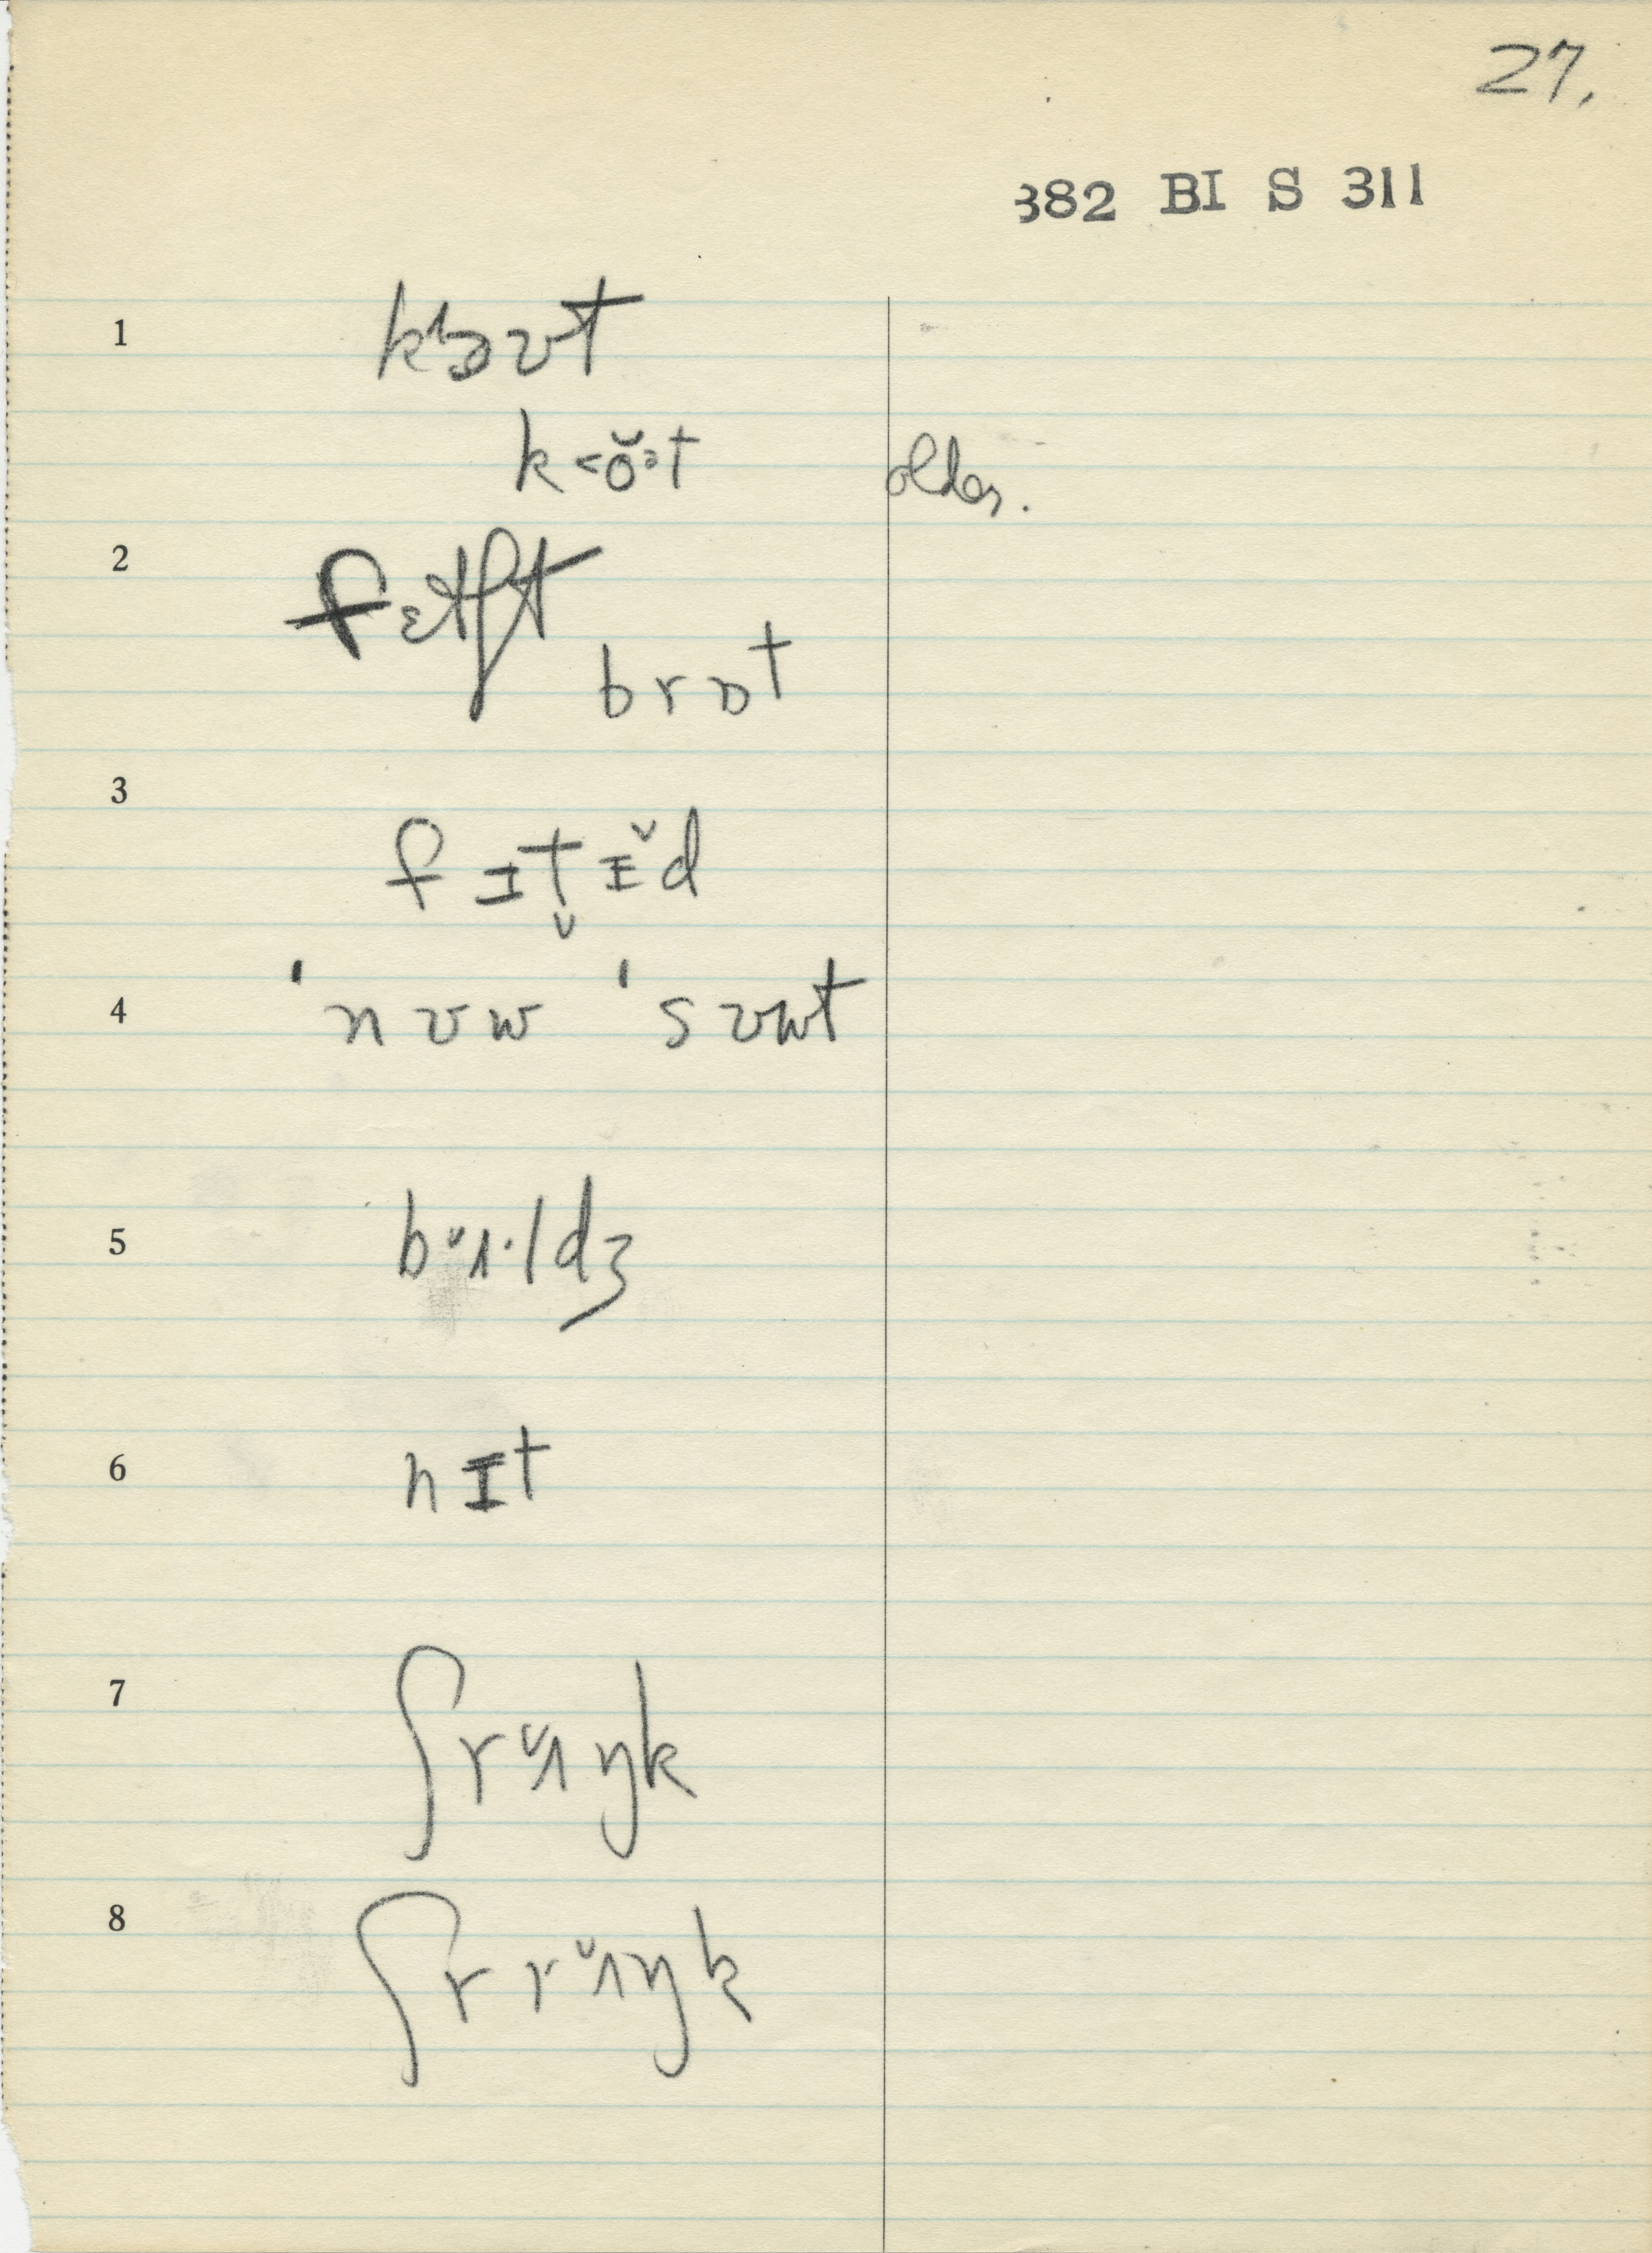 27.
382 BI S 311
1 kɔʊt
k<ŏət older.
2 fɛtʃt
brɒt
3 fɪt̬ɪ̆d
4 'nʊw 'sʊwt
5 bʌ̆·ldʒ
6 nɪt
7 ʃrʌ̆ŋk
8 ʃrrʌ̆ŋk